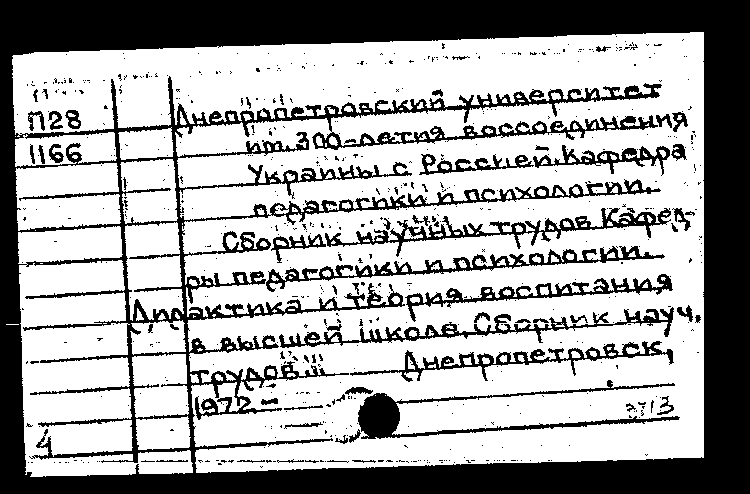 П28
1166
Днепропетровский университет
им. 300-летия воссоединения
Украины с Россией. Кафедра
педагогики и психологии.
Сборник научных трудов Кафед-
ры педагогики и психологии.
Дидактика и теория воспитания
в высшей школе. Сборник науч.
трудов... Днепропетровск,
1972 -
3713
4